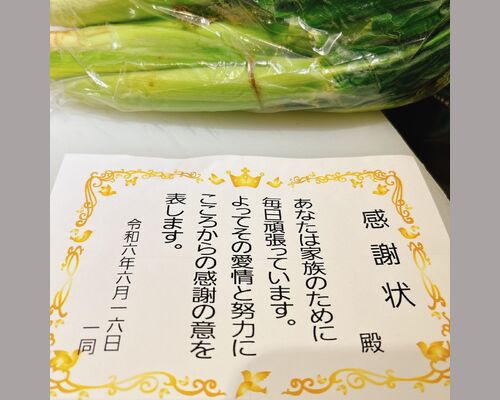 感謝状
殿
あなたは家族のために
毎日頑張っています。
よってその愛情と努力に
こころからの感謝の意を
表します。
令和六年六月一六日
一同